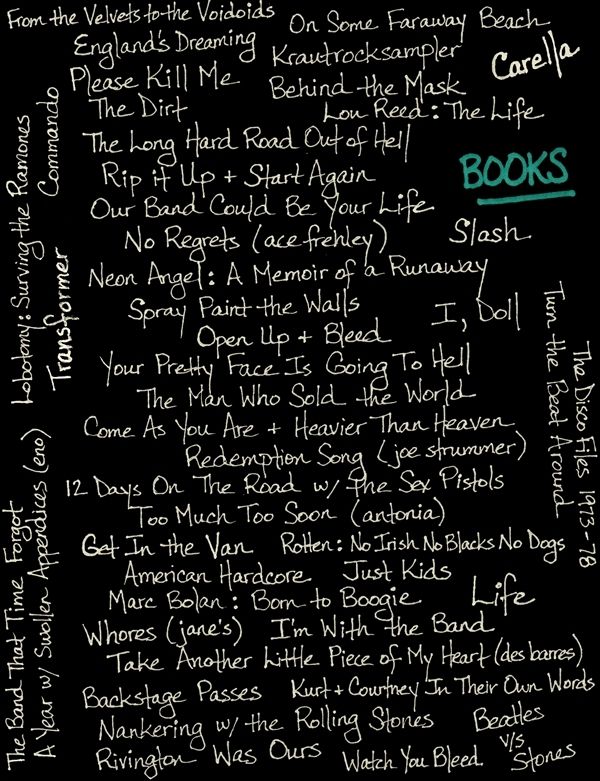 From the Velvets to the Voidoids
On Some Faraway Beach
England's Dreaming
Krautrocksampler
Carella
Please Kill Me
Behind the Mask
The Dirt
Lou Reed: The Life
The Long Hard Road Out of Hell
BOOKS
Rip it Up + Start Again
Our Band Could Be Your Life
No Regrets (ace frehley)
Slash
Neon Angel: A Memoir of a Runaway
Spray Paint the Walls
I, Doll
Open Up + Bleed
Your Pretty Face Is Going To Hell
The Man Who Sold the World
Come As You Are + Heavier Than Heaven
Redemption Song (joe strummer)
12 Days On The Road w/ The Sex Pistols
Too Much Too Soon (antonia)
Get In the Van
Rotten: No Irish No Blacks No Dogs
American Hardcore
Just Kids
Marc Bolan: Born to Boogie
Life
Whores (jane's)
I'm With the Band
Take Another Little Piece of My Heart (des barres)
Backstage Passes
Kurt + Courtney In Their Own Words
Nankering w/ the Rolling Stones
Beatles
v/s
Stones
Rivington Was Ours
Watch You Bleed
Lobotomy: Surving the Ramones
Commando
Transformer
The Band That Time Forgot
A Year w/ Swollen Appendices (eno)
The Disco Files 1973-78
Turn the Beat Around